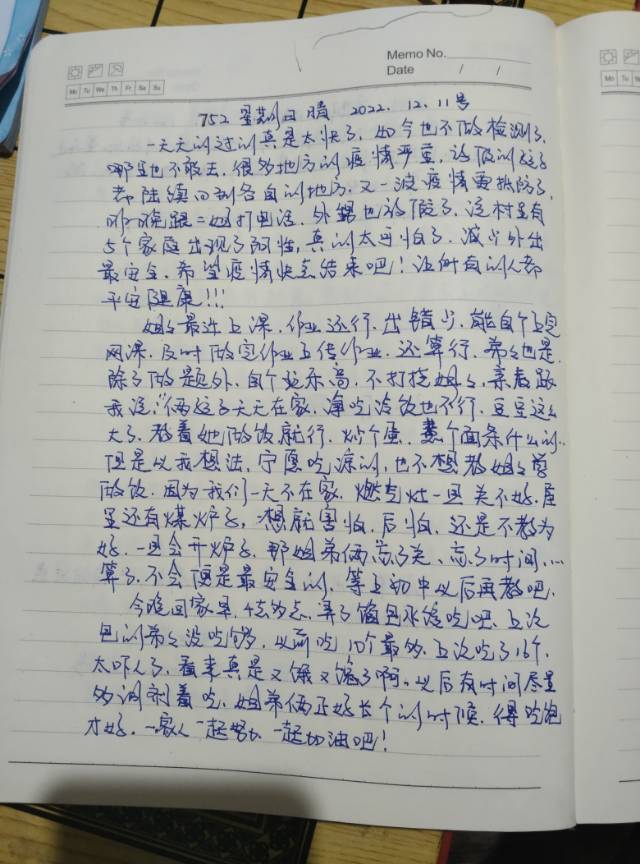 Memo No.
Date / /
Mo Tu We Th Fr Sa Su
752 星期日 晴 2022.12.11号
一天天的过的真是太快了，如今也不做检测了，
哪里也不敢去，很多地方的疫情严重，该放的孩子
都陆续回到各自的地方，又一波疫情要抵防了，
昨晚跟二姐打电话，外甥也放假了，说村里有
5个家庭出现了阳性，真的太可怕了，减少外出
最安全，希望疫情快点结束吧！让所有的人都
平安健康!!!
姐姐最近上课，作业还行，出错少，能自个上完
网课，及时做完作业上传作业，还算行，弟弟也是
除了做题外，自个玩乐高，不打扰姐姐，亲戚跟
我说，"俩孩子天天在家，净吃凉饭也不行，豆豆这么
大了，教着她做饭就行，炒个蛋，煮个面条什么的…
但是以我想法，宁愿吃凉的，也不想教姐姐学
做饭，因为我们一天不在家，燃气灶一旦关不好，屋
里还有煤炉子，想就害怕，后怕，还是不教为
好，一旦会开炉子，那姐弟俩忘了关、忘了时间，…
算了，不会但是最安全的，等上初中以后再教吧，
今晚回家早，4点多点，弄了馅包水饺吃吧，上次
包的弟弟没吃够，以前吃10个最多，上次吃了16个，
太吓人了，看来真是又馋又饿了啊，以后有时间尽量
多调剂着吃，姐弟俩正好长个的时候，得吃饱
才好，一家人一起努力一起加油吧！